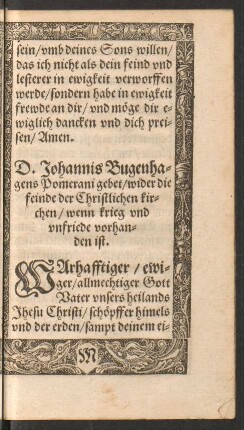 sein/vmb deines Sons willen/
das ich nicht als dein feind vnd
lesterer in ewigkeit verworffen
werde/sondern habe in ewigkeit
frewde an dir/vnd möge dir e-
wiglich dancken vnd dich prei-
sen/Amen.
D. Johannis Bugenha-
gens Pomerani gebet/wider die
feinde der Christlichen kir-
chen/wenn krieg vnd
vnfriede vorhan-
den ist.
WArhafftiger/ewi-
ger/allmechtiger Gott
Vater vnsers heilands
Jhesu Christi/schöpffer himels
vnd der erden/sampt deinem ei-
M